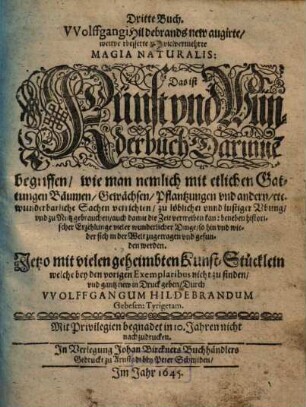 Dritte Buch.
VVolffgangi Hildebrands new augirte/
MAGIA NATURALIS:
Das ist
Kunst vnd Wun
derbuch Darinne
begriffen/ wie man nemlich mit etlichen Gat-
tungen Bäumen/ Gewächsen/ Pflantzungen vnd andern/ ett-
wunderbarliche Sachen verrichten/ zu löblicher vnd lustiger Vbung/
vnd zu Nutz gebrauchen/ auch damit die Zeit vertreiben kan: beneben histori-
scher Erzehlunge vieler wunderlicher Dinge/ so hin vnd wie-
der sich in der Welt zugetragen vnd gefun-
den werden.
Jetzo mit vielen geheimbten Kunst-Stücklein
welche bey den vorigen Exemplaribus nicht zu finden/
vnd gantz new in Druck geben/ Durch
VVOLFFGANGUM HILDEBRANDUM
Gebesens: Tyrigetam.
Mit Privilegien begnadet in 10. Jahren nicht
nachzudrucken.
In Verlegung Johan Birckners Buchhändlers
Gedruckt zu Arnstadt bey Peter Schmiden/
Im Jahr 1645.